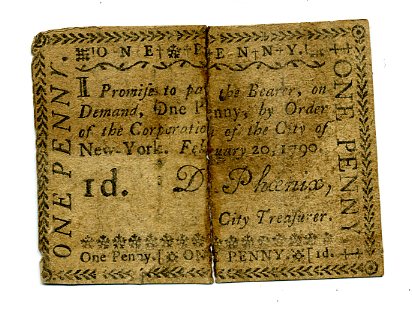 ONE PENNY.
ONE PENNY.
I Promise to pay the Bearer, on
Demand, One Penny, by Order
of the Corporation of the City of
New-York. February 20, 1790.
1d. D. Phœnix,
City Treasurer.
One Penny. [ ONE PENNY. [1d.
ONE PENNY